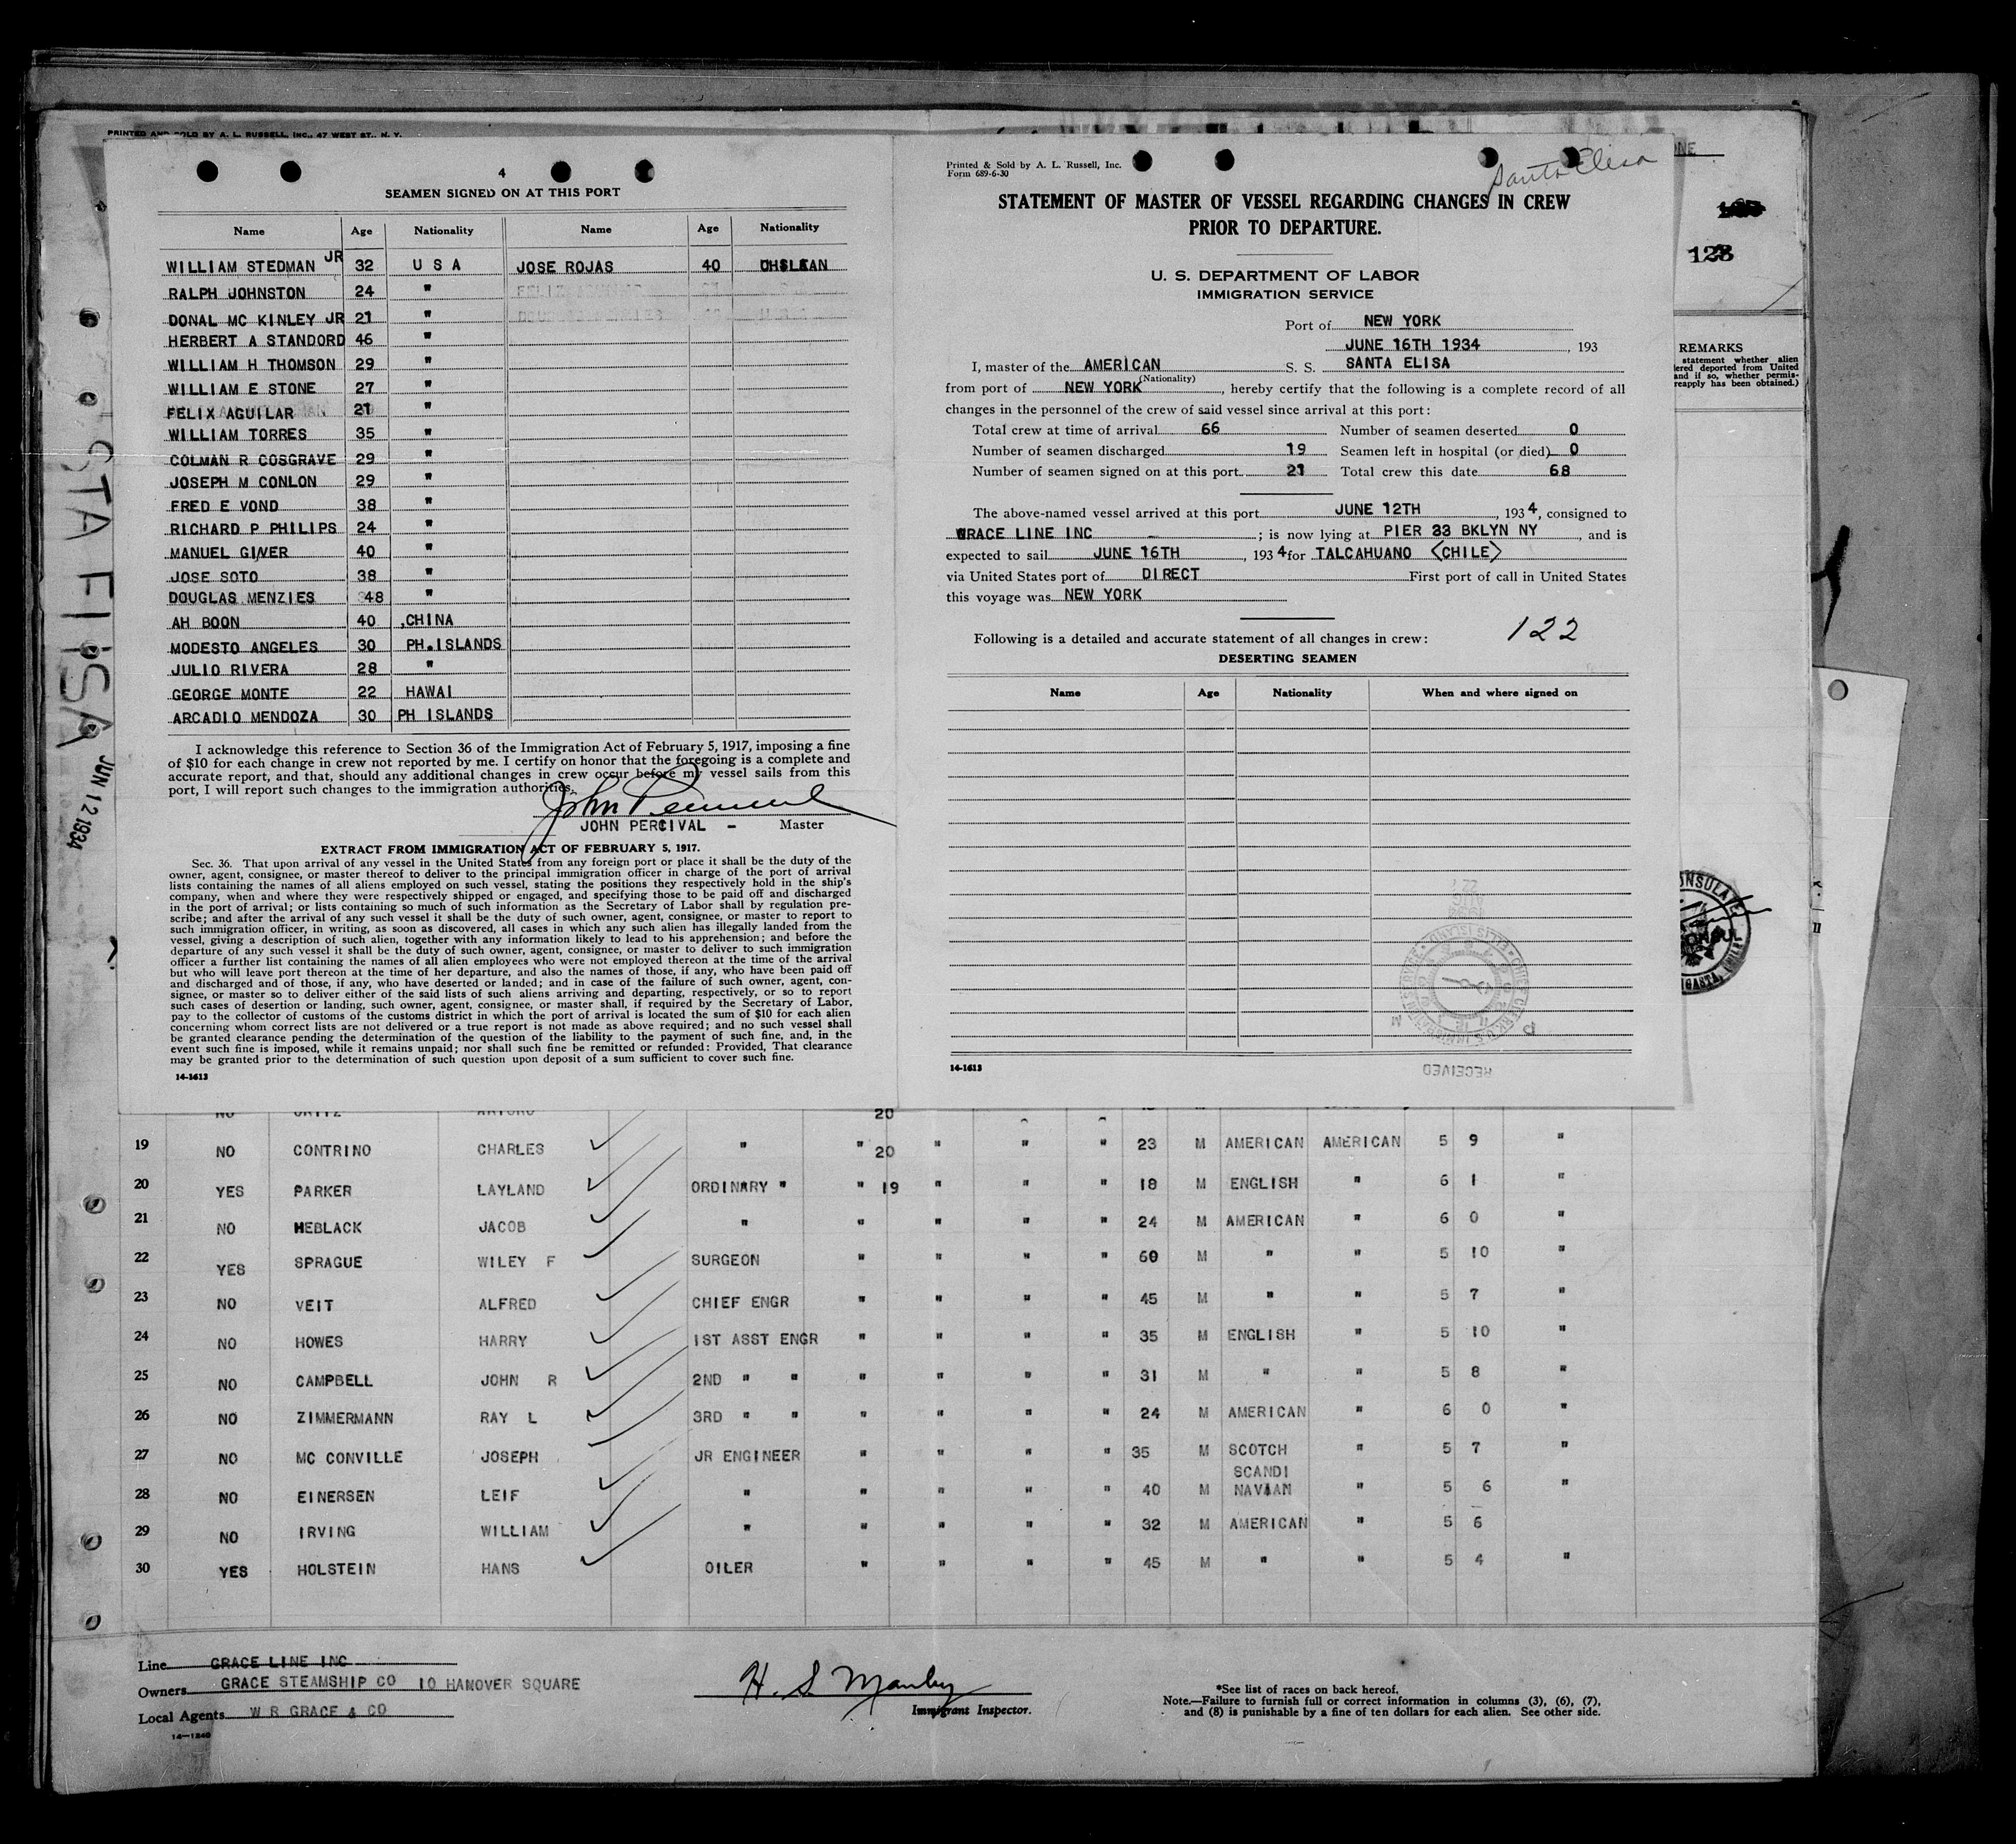 PRINTED AND SOLD BY A. L. RUSSELL, INC., 47 WEST ST., N. Y.
4
SEAMEN SIGNED ON AT THIS PORT
Name Age Nationality Name Age Nationality
WILLIAM STEDMAN JR 32 U S A JOSE ROJAS 40 CHILEAN
RALPH JOHNSTON 24 "
DONAL MC KINLEY JR 21 "
HERBERT A STANDORD 46 "
WILLIAM H THOMSON 29 "
WILLIAM E STONE 27 "
FELIX AGUILAR 21 "
WILLIAM TORRES 35 "
COLMAN R COSGRAVE 29 "
JOSEPH M CONLON 29 "
FRED E VOND 38 "
RICHARD P PHILIPS 24 "
MANUEL GINER 40 "
JOSE SOTO 38 "
DOUGLAS MENZIES 48 "
AH BOON 40 ,CHINA
MODESTO ANGELES 30 PH.ISLANDS
JULIO RIVERA 28 "
GEORGE MONTE 22 HAWAI
ARCADIO MENDOZA 30 PH ISLANDS
I acknowledge this reference to Section 36 of the Immigration Act of February 5, 1917, imposing a fine
of $10 for each change in crew not reported by me. I certify on honor that the foregoing is a complete and
accurate report, and that, should any additional changes in crew occur before my vessel sails from this
port, I will report such changes to the immigration authorities.
John Percival
JOHN PERCIVAL - Master
EXTRACT FROM IMMIGRATION ACT OF FEBRUARY 5, 1917.
Sec. 36. That upon arrival of any vessel in the United States from any foreign port or place it shall be the duty of the
owner, agent, consignee, or master thereof to deliver to the principal immigration officer in charge of the port of arrival
lists containing the names of all aliens employed on such vessel, stating the positions they respectively hold in the ship's
company, when and where they were respectively shipped or engaged, and specifying those to be paid off and discharged
in the port of arrival; or lists containing so much of such information as the Secretary of Labor shall by regulation pre-
scribe; and after the arrival of any such vessel it shall be the duty of such owner, agent, consignee, or master to report to
such immigration officer, in writing, as soon as discovered, all cases in which any such alien has illegally landed from the
vessel, giving a description of such alien, together with any information likely to lead to his apprehension; and before the
departure of any such vessel it shall be the duty of such owner, agent, consignee, or master to deliver to such immigration
officer a further list containing the names of all alien employees who were not employed thereon at the time of the arrival
but who will leave port thereon at the time of her departure, and also the names of those, if any, who have been paid off
and discharged and of those, if any, who have deserted or landed; and in case of the failure of such owner, agent, con-
signee, or master so to deliver either of the said lists of such aliens arriving and departing, respectively, or so to report
such cases of desertion or landing, such owner, agent, consignee, or master shall, if required by the Secretary of Labor,
pay to the collector of customs of the customs district in which the port of arrival is located the sum of $10 for each alien
concerning whom correct lists are not delivered or a true report is not made as above required; and no such vessel shall
be granted clearance pending the determination of the question of the liability to the payment of such fine, and, in the
event such fine is imposed, while it remains unpaid; nor shall such fine be remitted or refunded: Provided, That clearance
may be granted prior to the determination of such question upon deposit of a sum sufficient to cover such fine.
14-1613
Printed & Sold by A. L. Russell, Inc.
Form 689-6-30
Santa Elisa
STATEMENT OF MASTER OF VESSEL REGARDING CHANGES IN CREW
PRIOR TO DEPARTURE.
U. S. DEPARTMENT OF LABOR
IMMIGRATION SERVICE
Port of NEW YORK
JUNE 16TH 1934, 193
I, master of the AMERICAN S. S. SANTA ELISA
(Nationality)
from port of NEW YORK, hereby certify that the following is a complete record of all
changes in the personnel of the crew of said vessel since arrival at this port:
Total crew at time of arrival 66 Number of seamen deserted 0
Number of seamen discharged 19 Seamen left in hospital (or died) 0
Number of seamen signed on at this port 21 Total crew this date 68
The above-named vessel arrived at this port JUNE 12TH, 1934, consigned to
GRACE LINE INC ; is now lying at PIER 33 BKLYN NY, and is
expected to sail JUNE 16TH, 1934 for TALCAHUANO (CHILE)
via United States port of DIRECT First port of call in United States
this voyage was NEW YORK
Following is a detailed and accurate statement of all changes in crew: 122
DESERTING SEAMEN
Name Age Nationality When and where signed on
RECEIVED
14-1613
128
REMARKS
statement whether alien
ered deported from United
and if so, whether permis-
reapply has been obtained.)
STA ELISA
JUN 12 1934
NO ORTIZ ARTURO 20
19 NO CONTRINO CHARLES " " 20 " " " 23 M AMERICAN AMERICAN 5 9 "
20 YES PARKER LAYLAND ORDINARY " " 19 " " " 18 M ENGLISH " 6 1 "
21 NO HEBLACK JACOB " " " " " 24 M AMERICAN " 6 0 "
22 YES SPRAGUE WILEY F SURGEON " " " " 60 M " " 5 10 "
23 NO VEIT ALFRED CHIEF ENGR " " " " 45 M " " 5 7 "
24 NO HOWES HARRY 1ST ASST ENGR " " " " 35 M ENGLISH " 5 10 "
25 NO CAMPBELL JOHN R 2ND " " " " " " 31 M " " 5 8 "
26 NO ZIMMERMANN RAY L 3RD " " " " " " 24 M AMERICAN " 6 0 "
27 NO MC CONVILLE JOSEPH JR ENGINEER " " " " 35 M SCOTCH " 5 7 "
28 NO EINERSEN LEIF " " " " " 40 M SCANDI NAVIAN " 5 6 "
29 NO IRVING WILLIAM " " " " " 32 M AMERICAN " 5 6
30 YES HOLSTEIN HANS OILER " " " " 45 M " " 5 4 "
Line GRACE LINE INC
Owners GRACE STEAMSHIP CO 10 HANOVER SQUARE
Local Agents W R GRACE & CO
14-1240
H. S. Manley
Immigrant Inspector.
*See list of races on back hereof.
Note.—Failure to furnish full or correct information in columns (3), (6), (7),
and (8) is punishable by a fine of ten dollars for each alien. See other side.